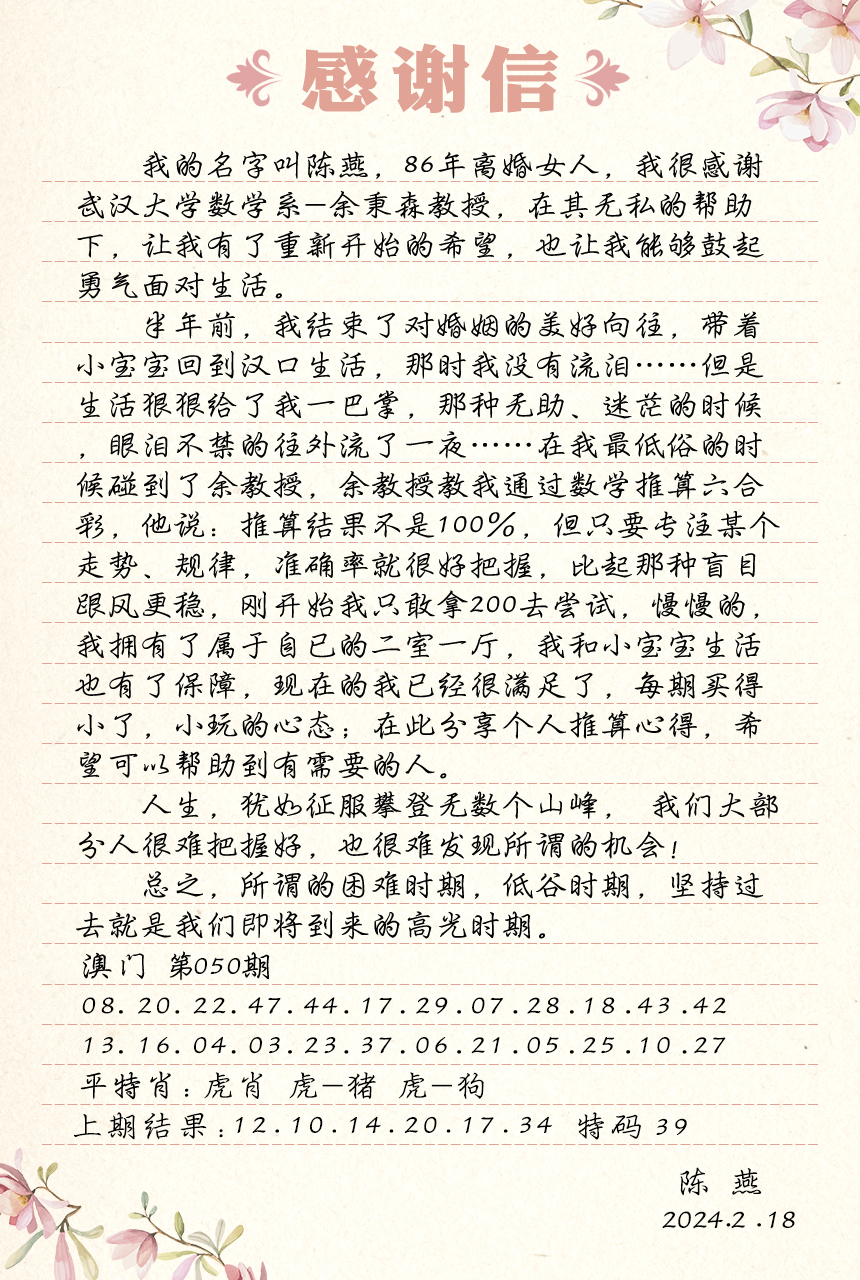 感谢信
我的名字叫陈燕，86年离婚女人，我很感谢
武汉大学数学系—余秉森教授，在其无私的帮助
下，让我有了重新开始的希望，也让我能够鼓起
勇气面对生活。
半年前，我结束了对婚姻的美好向往，带着
小宝宝回到汉口生活，那时我没有流泪……但是
生活狠狠给了我一巴掌，那种无助、迷茫的时候
，眼泪不禁的往外流了一夜……在我最低俗的时
候碰到了余教授，余教授教我通过数学推算六合
彩，他说：推算结果不是100%，但只要专注某个
走势、规律，准确率就很好把握，比起那种盲目
跟风更稳，刚开始我只敢拿200去尝试，慢慢的，
我拥有了属于自已的二室一厅，我和小宝宝生活
也有了保障，现在的我已经很满足了，每期买得
小了，小玩的心态；在此分享个人推算心得，希
望可以帮助到有需要的人。
人生，犹如征服攀登无数个山峰， 我们大部
分人很难把握好，也很难发现所谓的机会！
总之，所谓的困难时期，低谷时期，坚持过
去就是我们即将到来的高光时期。
澳门 第050期
08.20.22.47.44.17.29.07.28.18.43.42
13.16.04.03.23.37.06.21.05.25.10.27
平特肖：虎肖 虎—猪 虎—狗
上期结果：12.10.14.20.17.34 特码 39
陈 燕
2024.2.18